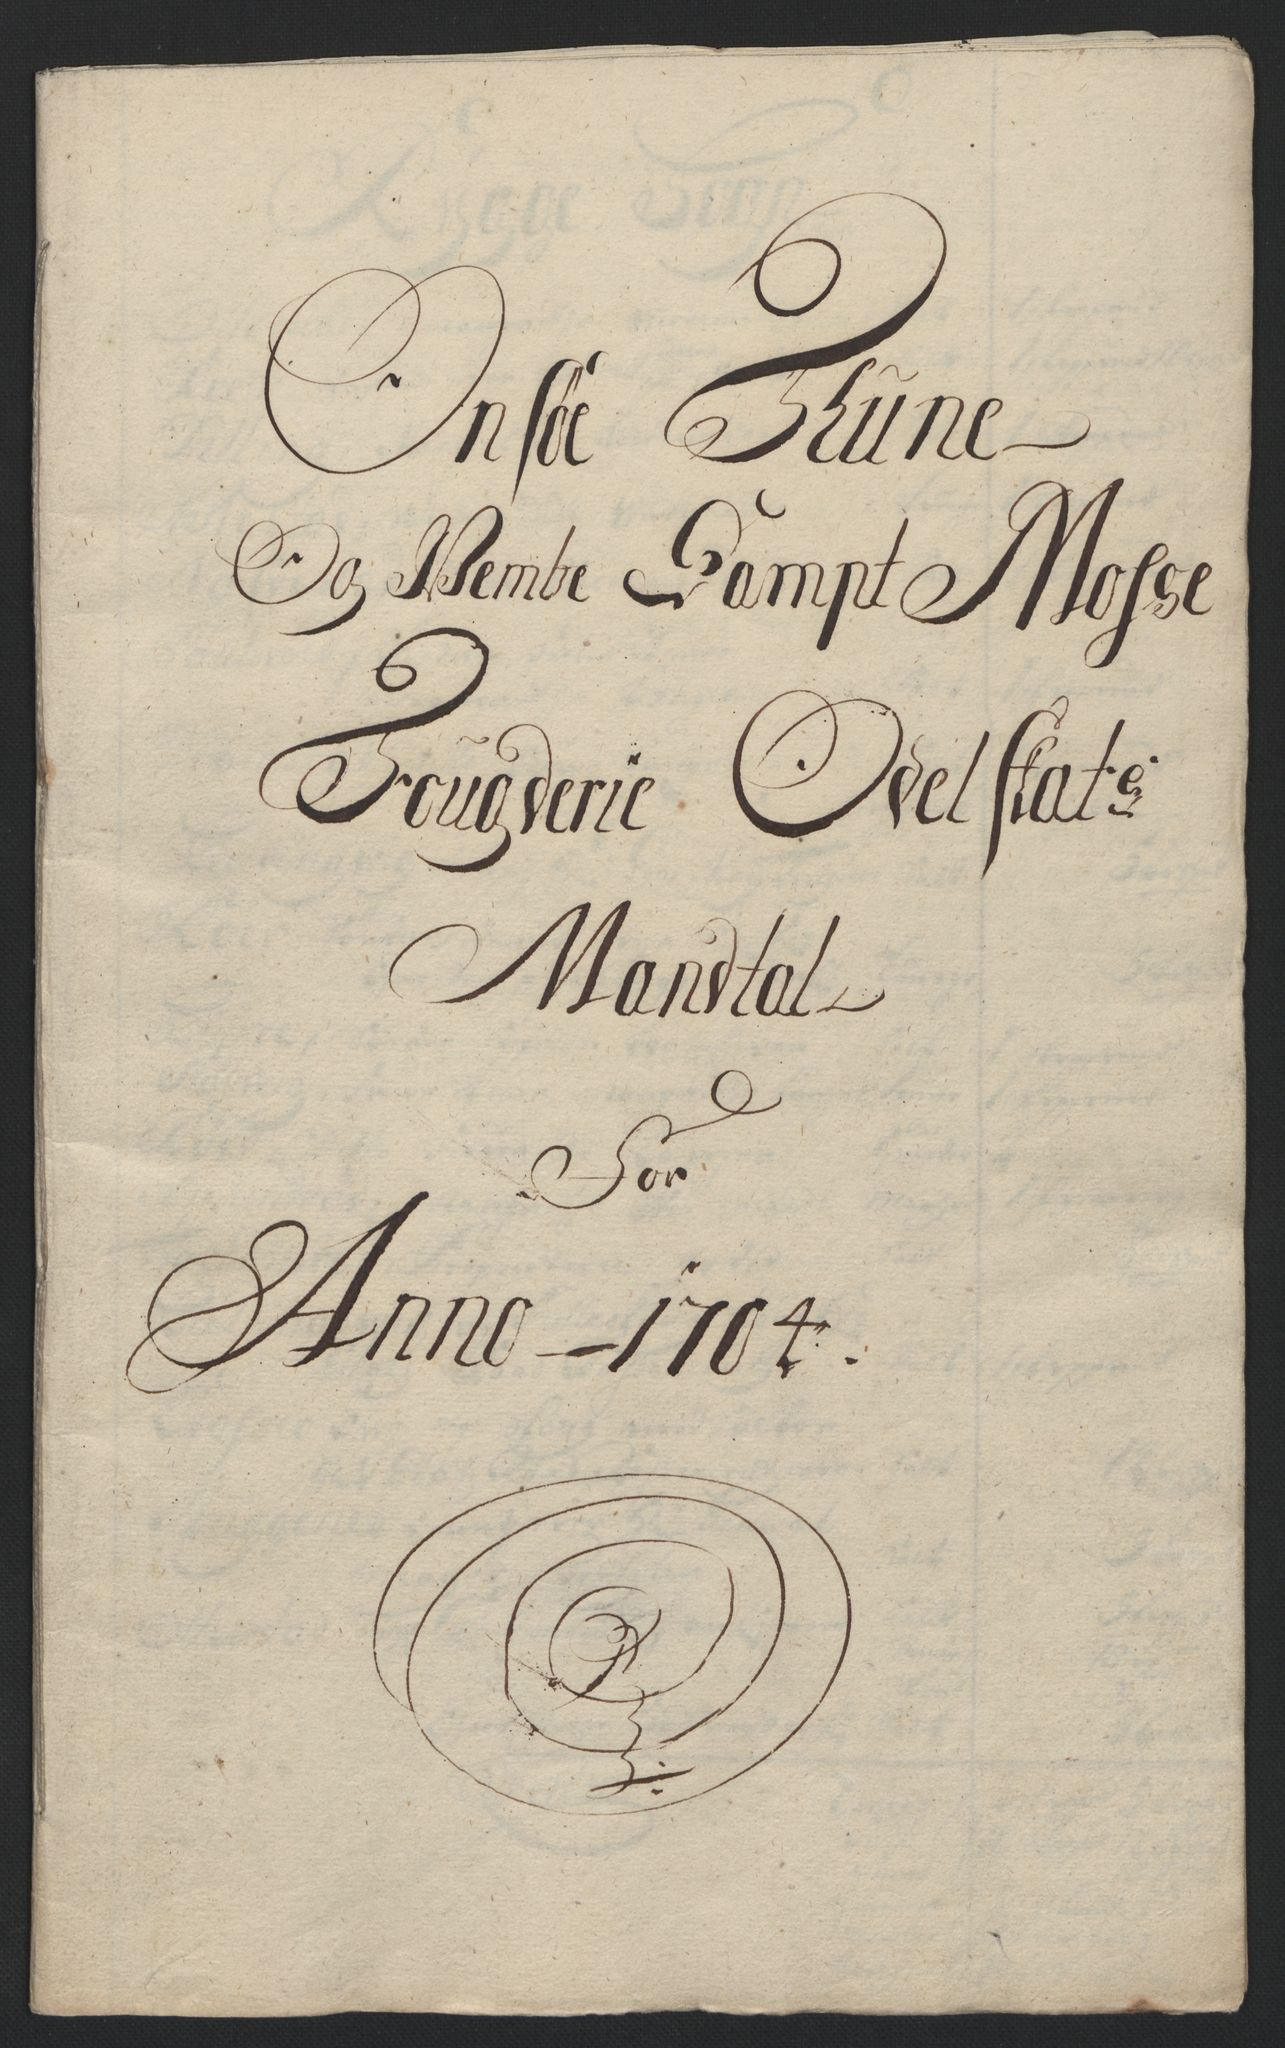 Onsöe Thüne
Og Wembe Sampt Mosse
Fougderie Odelskats
Mandtal
For
Anno 1704.